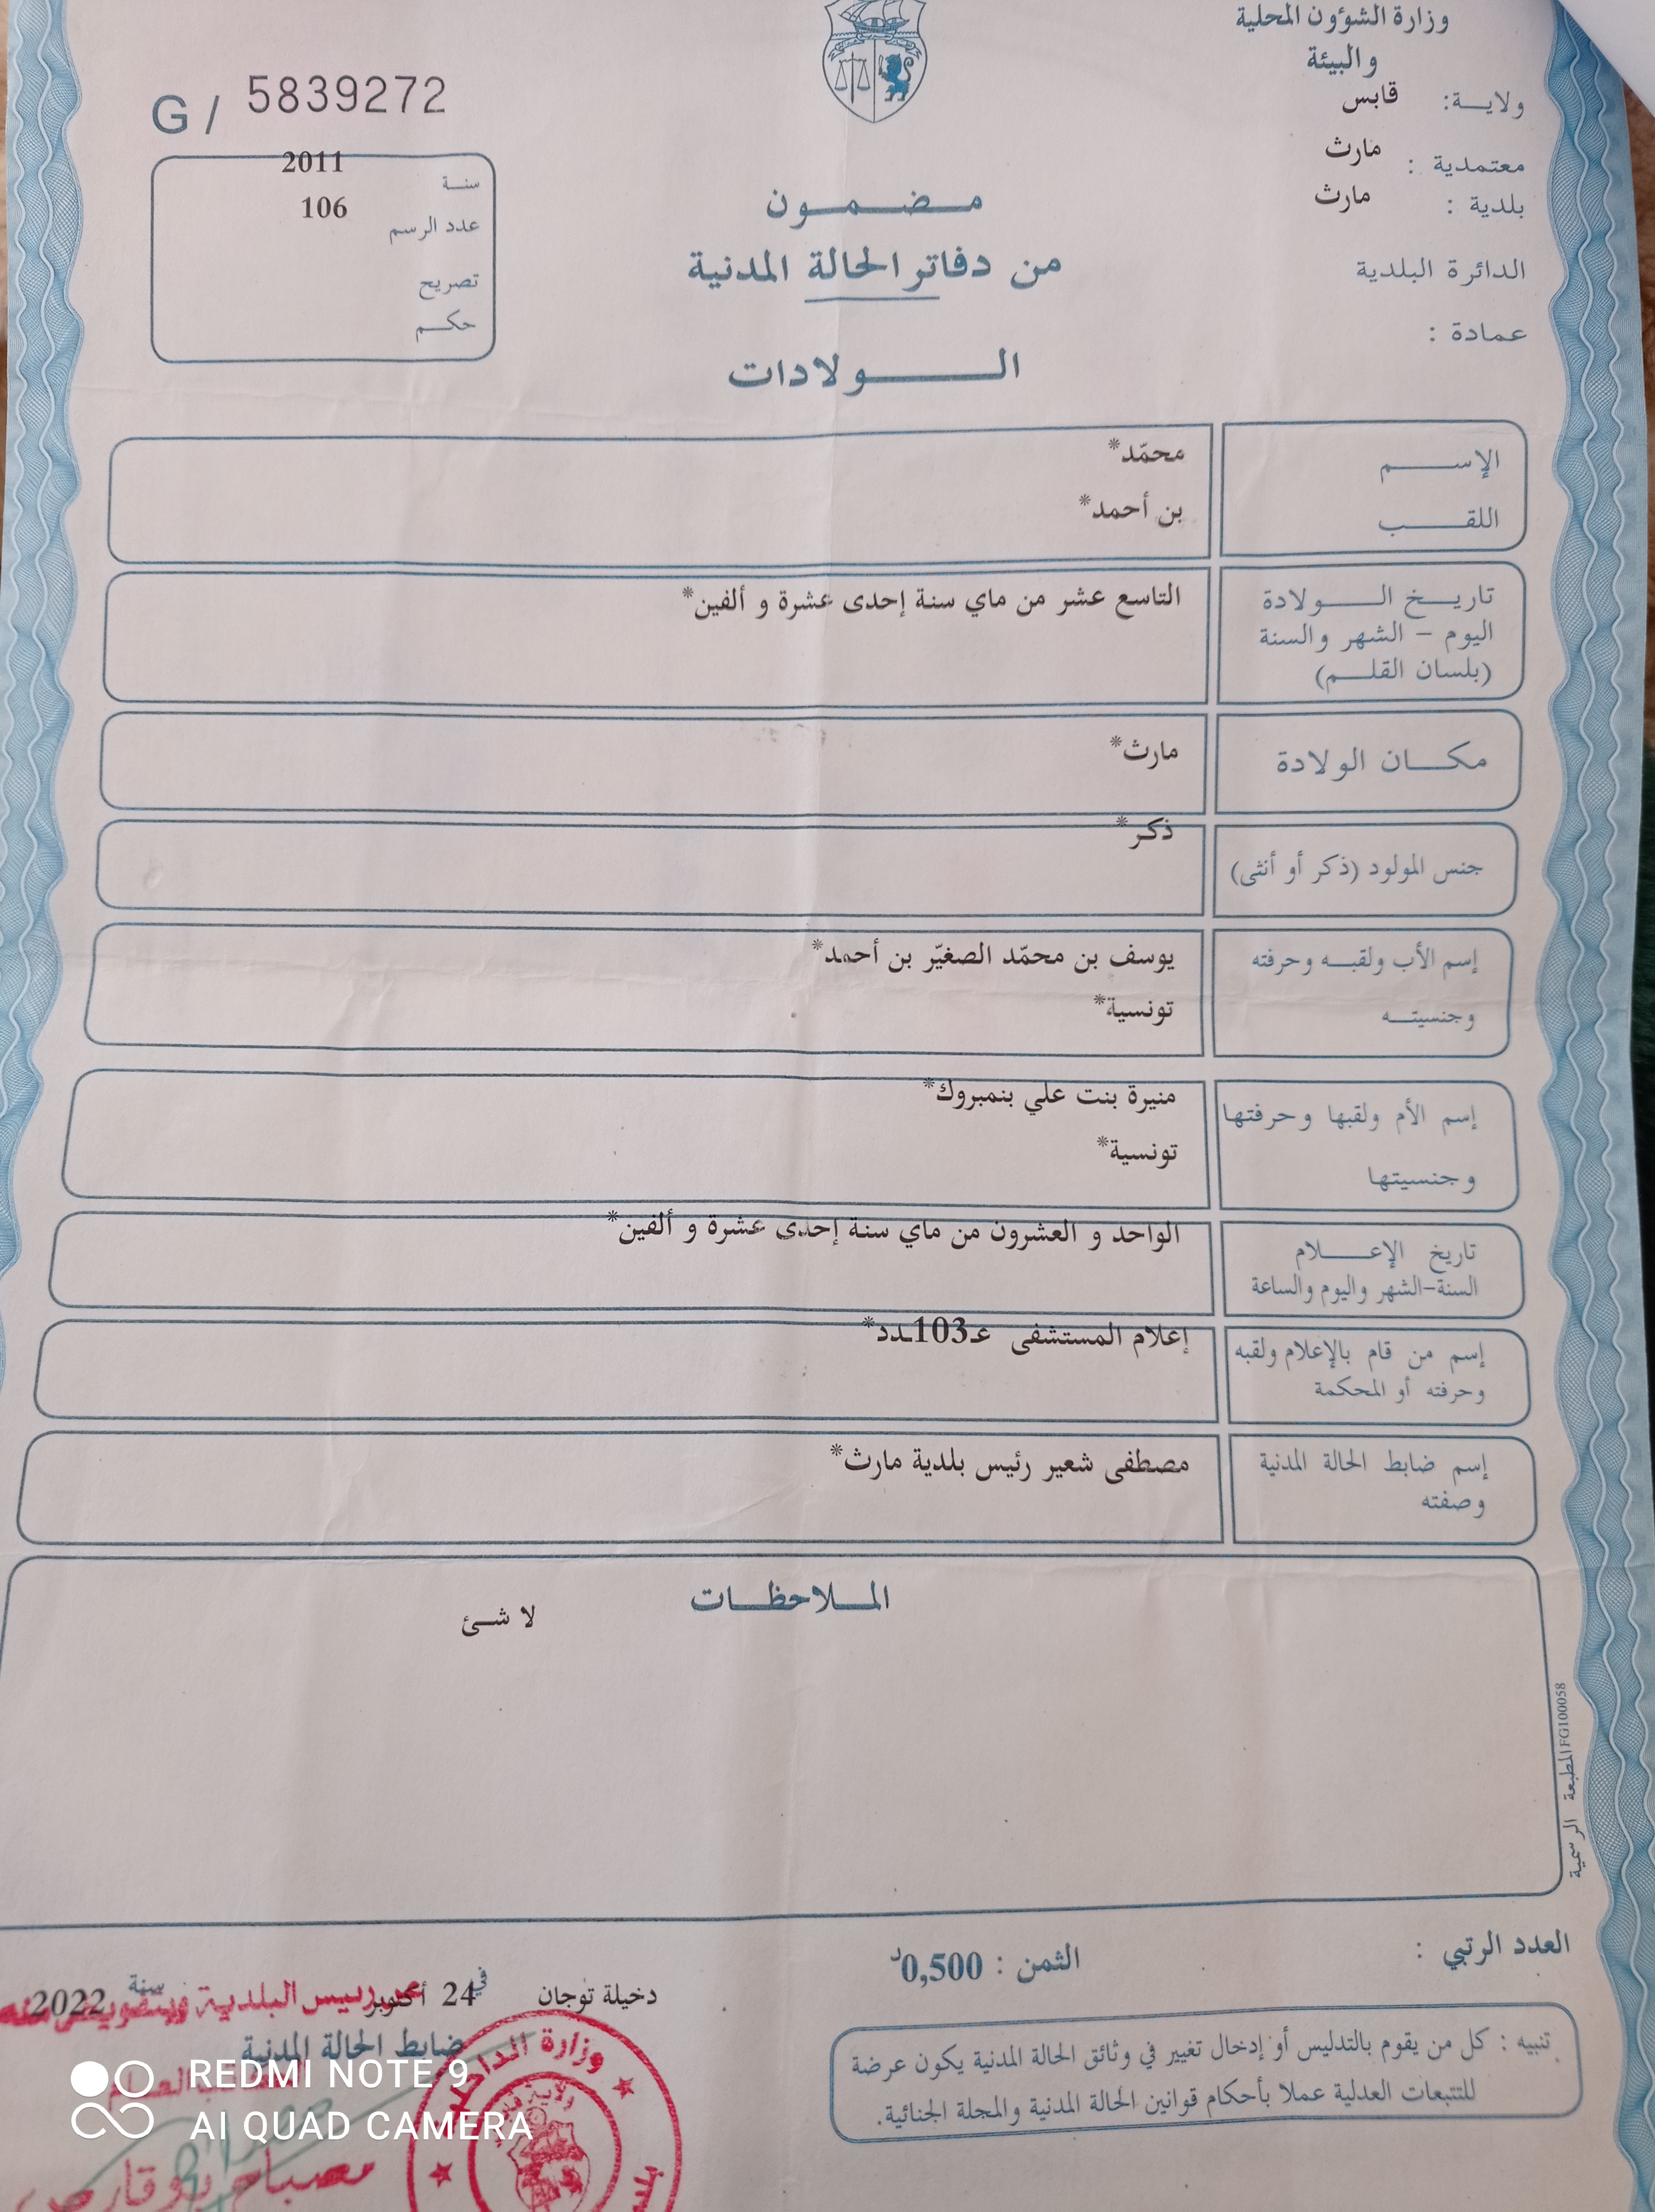 وزارة الشؤون المحلية
والبيئة
ولاية: قابس
معتمدية : مارث
بلدية : مارث
الدائرة البلدية
عمادة :
G / 5839272
سنة 2011
عدد الرسم 106
تصريح
حكم
مضمون
من دفاتر الحالة المدنية
الولادات
الإسم محمّد*
اللقب بن أحمد*
تاريخ الولادة التاسع عشر من ماي سنة إحدى عشرة و ألفين*
اليوم - الشهر والسنة
(بلسان القلم)
مكان الولادة مارث*
جنس المولود (ذكر أو أنثى) ذكر*
إسم الأب ولقبه وحرفته يوسف بن محمّد الصغيّر بن أحمد*
وجنسيته تونسية*
إسم الأم ولقبها وحرفتها منيرة بنت علي بنمبروك*
وجنسيتها تونسية*
تاريخ الإعلام الواحد و العشرون من ماي سنة إحدى عشرة و ألفين*
السنة-الشهر واليوم والساعة
إسم من قام بالإعلام ولقبه إعلام المستشفى عـ103ـدد*
وحرفته أو المحكمة
إسم ضابط الحالة المدنية مصطفى شعير رئيس بلدية مارث*
وصفته
الملاحظات
لا شئ
المطبعة الرسمية FG100058
العدد الرتبي :
الثمن : 0,500د
دخيلة توجان في 24 أكتوبر سنة 2022
عن رئيس البلدية وبتفويض منه
ضابط الحالة المدنية
وزارة الداخلية
تنبيه : كل من يقوم بالتدليس أو إدخال تغيير في وثائق الحالة المدنية يكون عرضة
للتتبعات العدلية عملا بأحكام قوانين الحالة المدنية والمجلة الجنائية.
مصباح بوقارص
REDMI NOTE 9
AI QUAD CAMERA